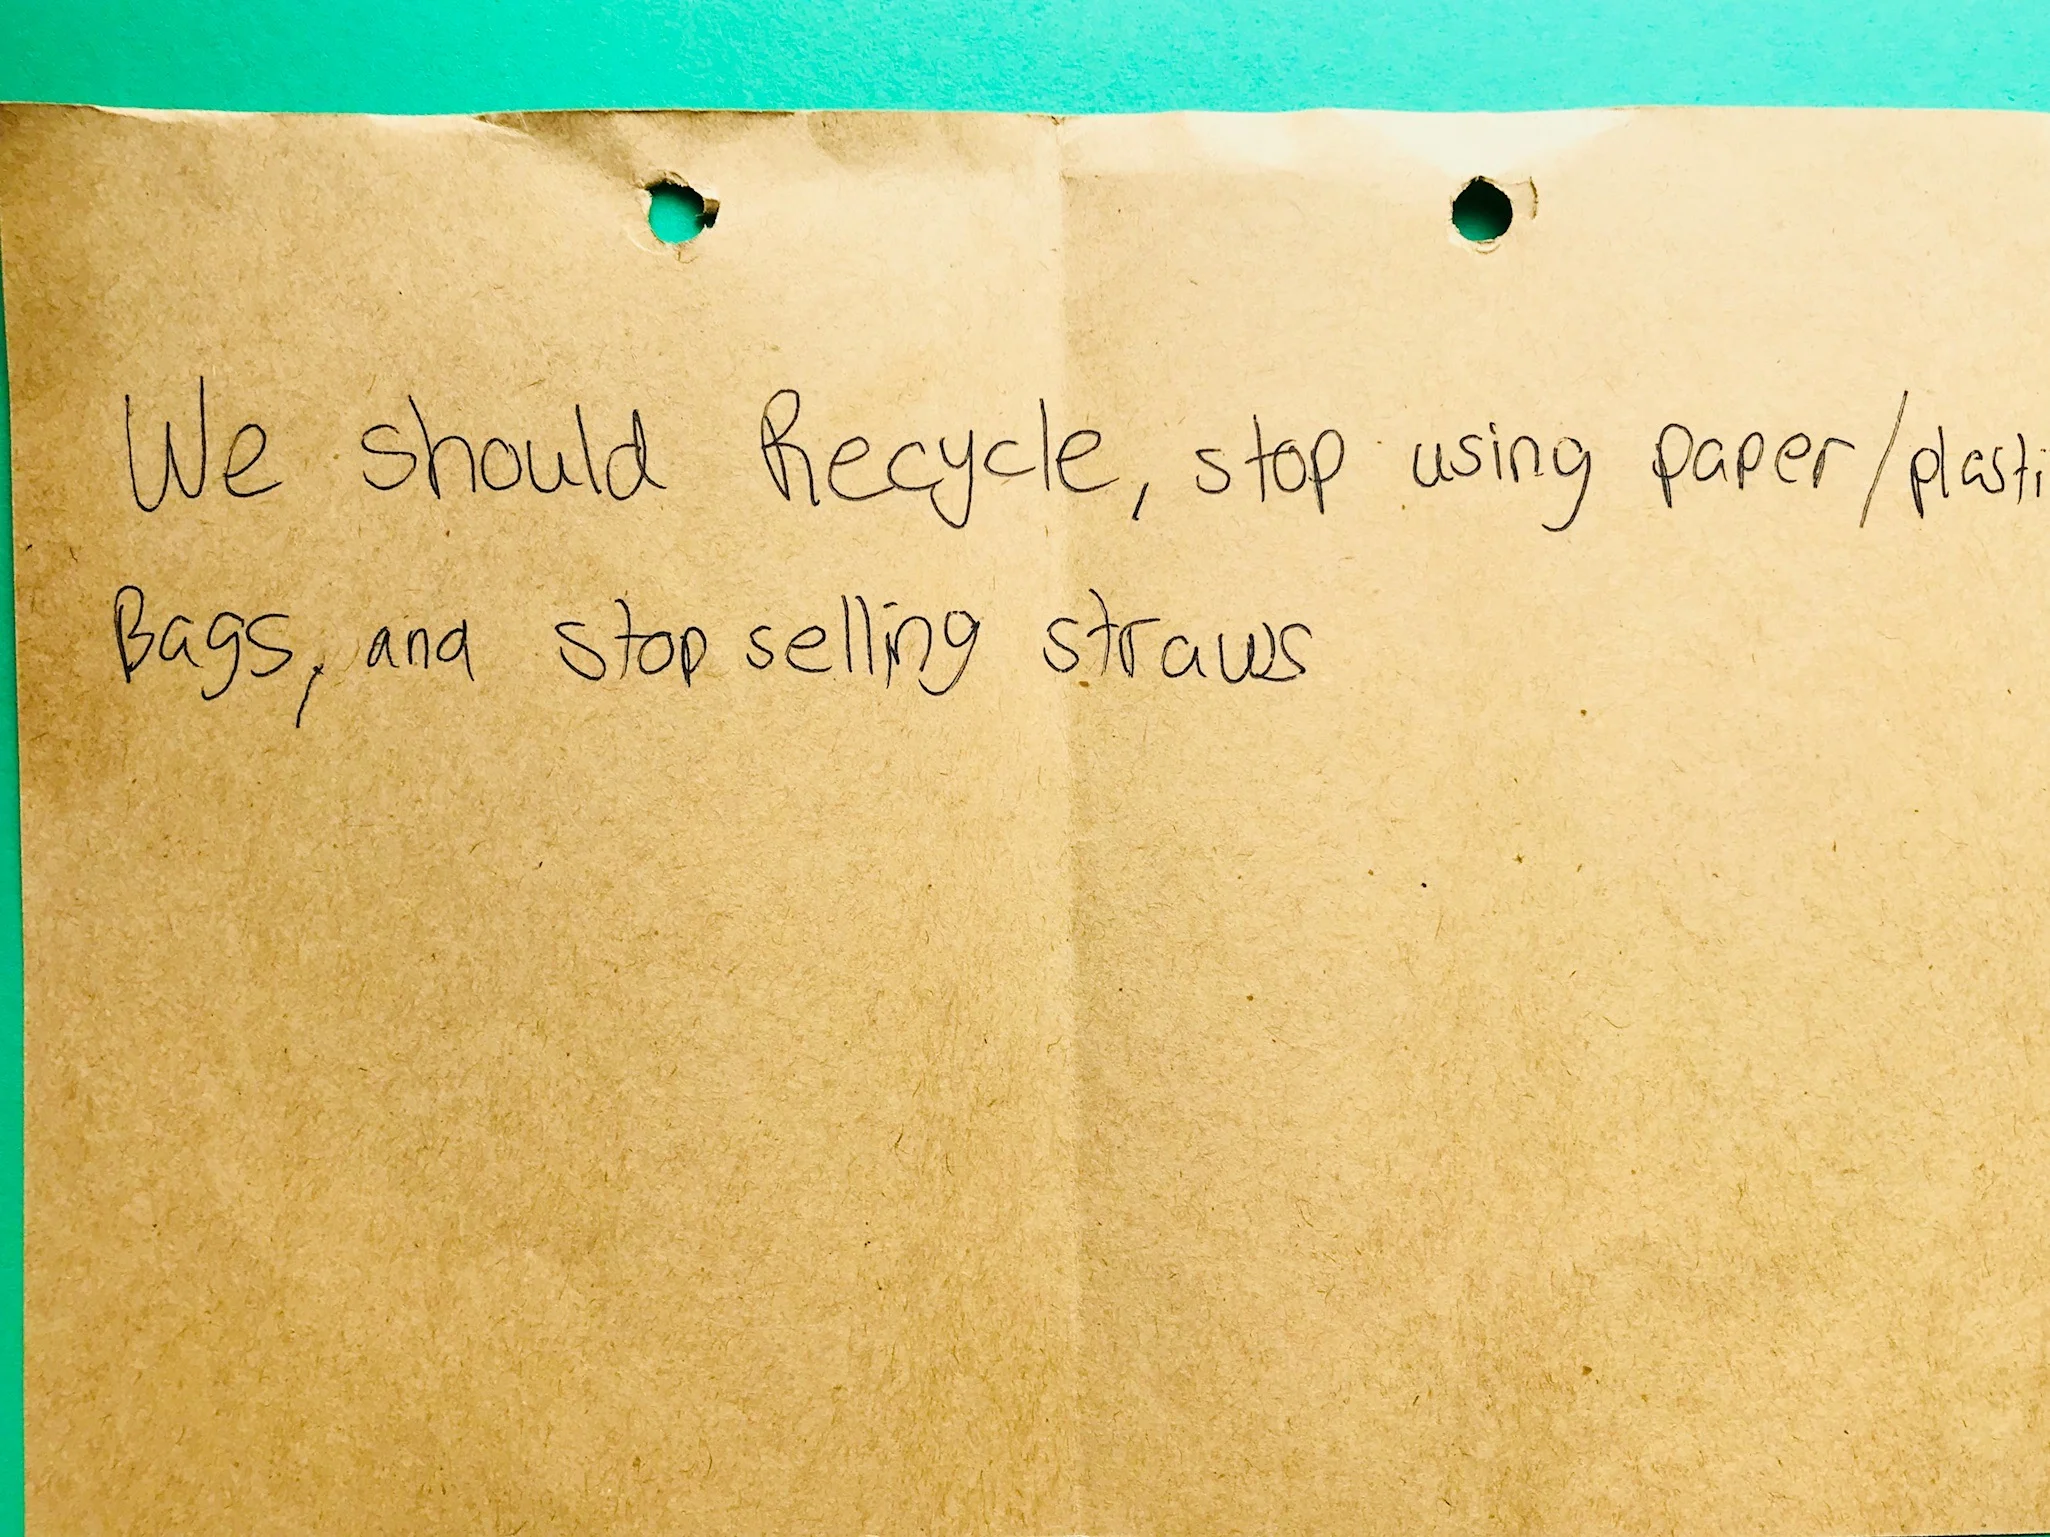 We should Recycle, stop using paper/plasti
Bags, and stop selling straws